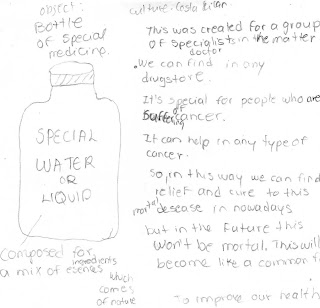 object:
Bottle
of special
medicine.
SPECIAL
WATER
OR
LIQUID
Composed for
ingredients
a mix of
which
comes
of nature
culture: Costa Rican
This was created for a group
of specialists in the matter
doctor
We can find in any
drugstore.
It's special for people who are
suffering of cancer.
It can help in any type of
cancer.
So, in this way we can find
relief and cure to this
mortal desease in nowadays
but in the future this
won't be mortal. This will
become like a common
To improve our health